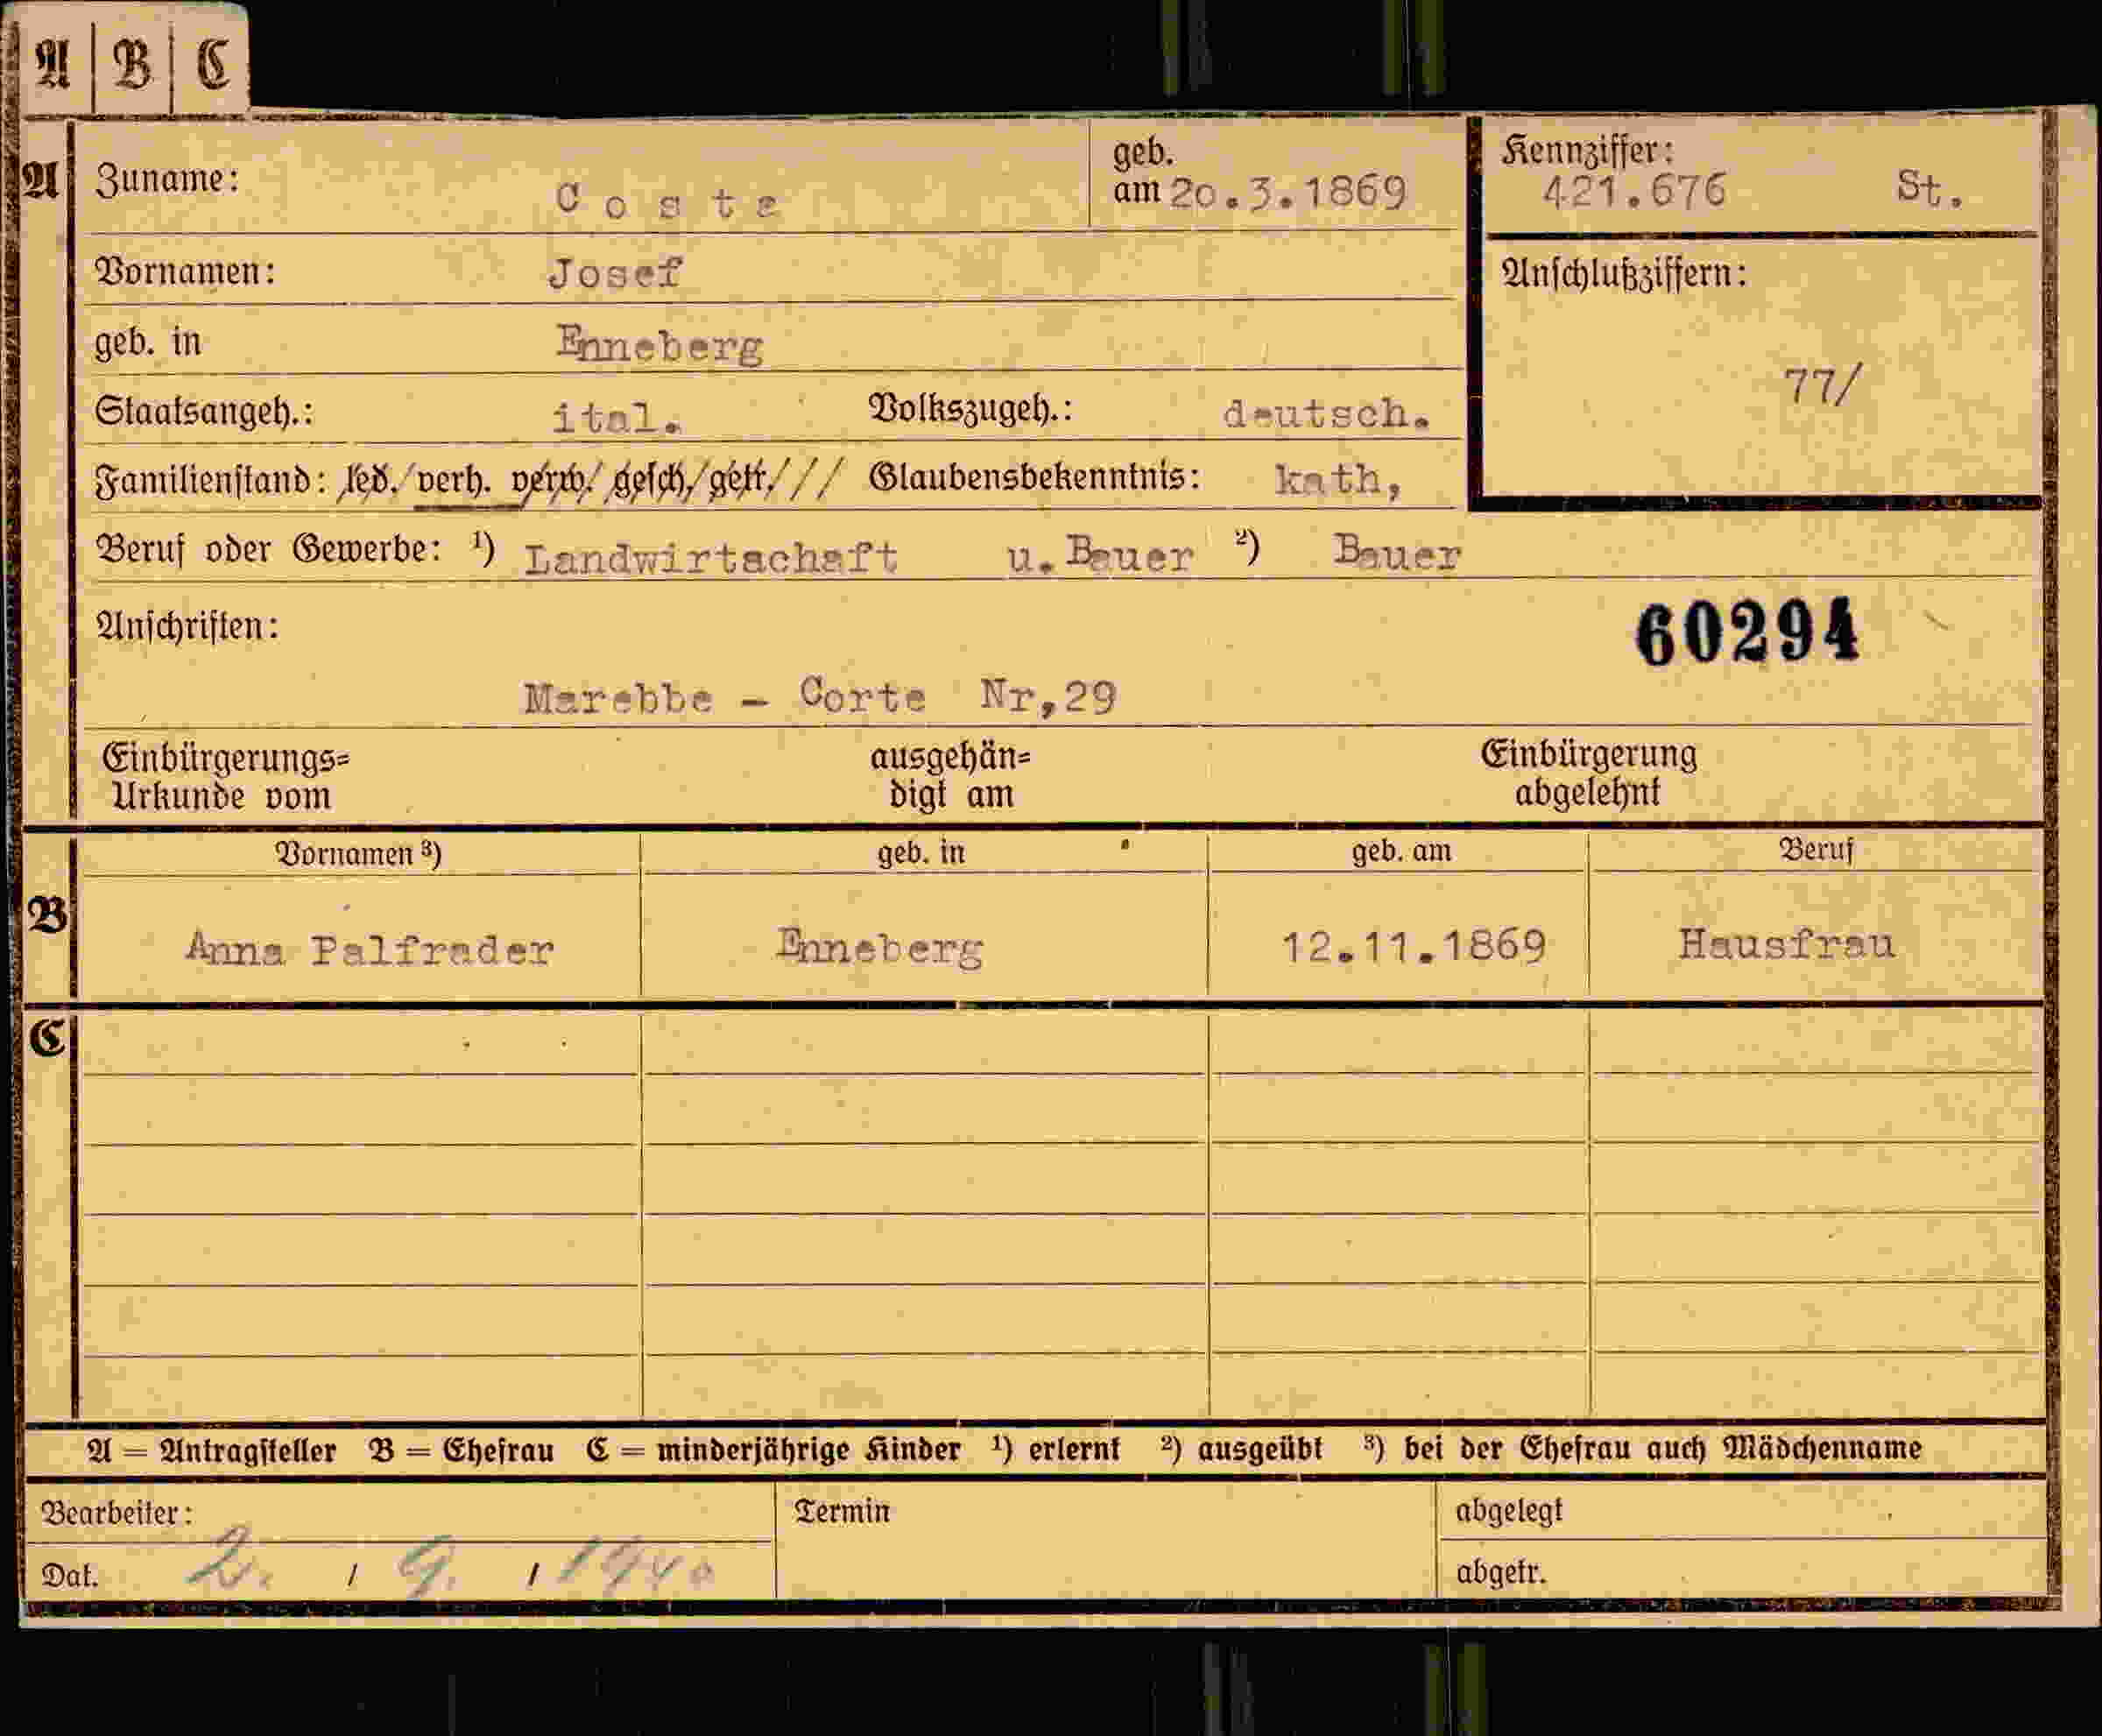 A B C
A Zuname: Coste geb. am 20.3.1869 Kennziffer: 421.676 St.
Vornamen: Josef Anschlußziffern:
geb. in Enneberg 77/
Staatsangeh.: ital. Volkszugeh.: deutsch.
Familienstand: led. verh. verw. gesch. getr. /// Glaubensbekenntnis: kath,
Beruf oder Gewerbe: ¹) Landwirtschaft u. Bauer ²) Bauer
Anschriften: 60294
Marebbe - Corte Nr,29
Einbürgerungs= ausgehän= Einbürgerung
Urkunde vom digt am abgelehnt
Vornamen ³) geb. in geb. am Beruf
B Anna Palfrader Enneberg 12.11.1869 Hausfrau
C
A = Antragsteller B = Ehefrau C = minderjährige Kinder ¹) erlernt ²) ausgeübt ³) bei der Ehefrau auch Mädchenname
Bearbeiter: Termin abgelegt
Dat. 2. / 9. / 1940 abgetr.